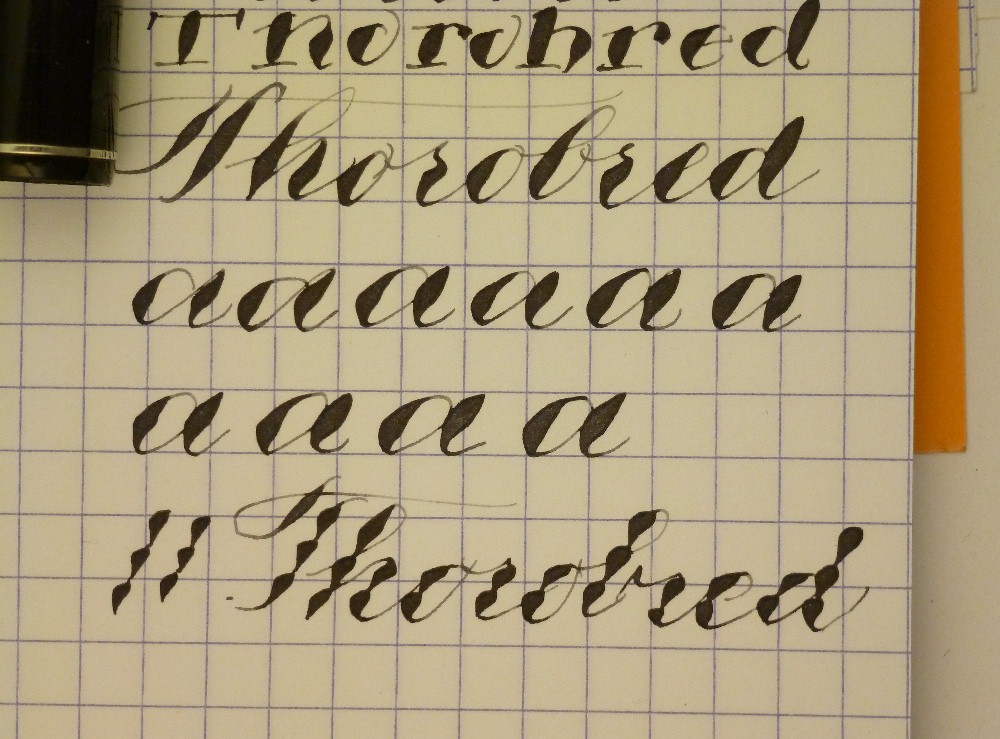 Thorobred
Thorobred
a a a a a a
a a a a
Thorobred